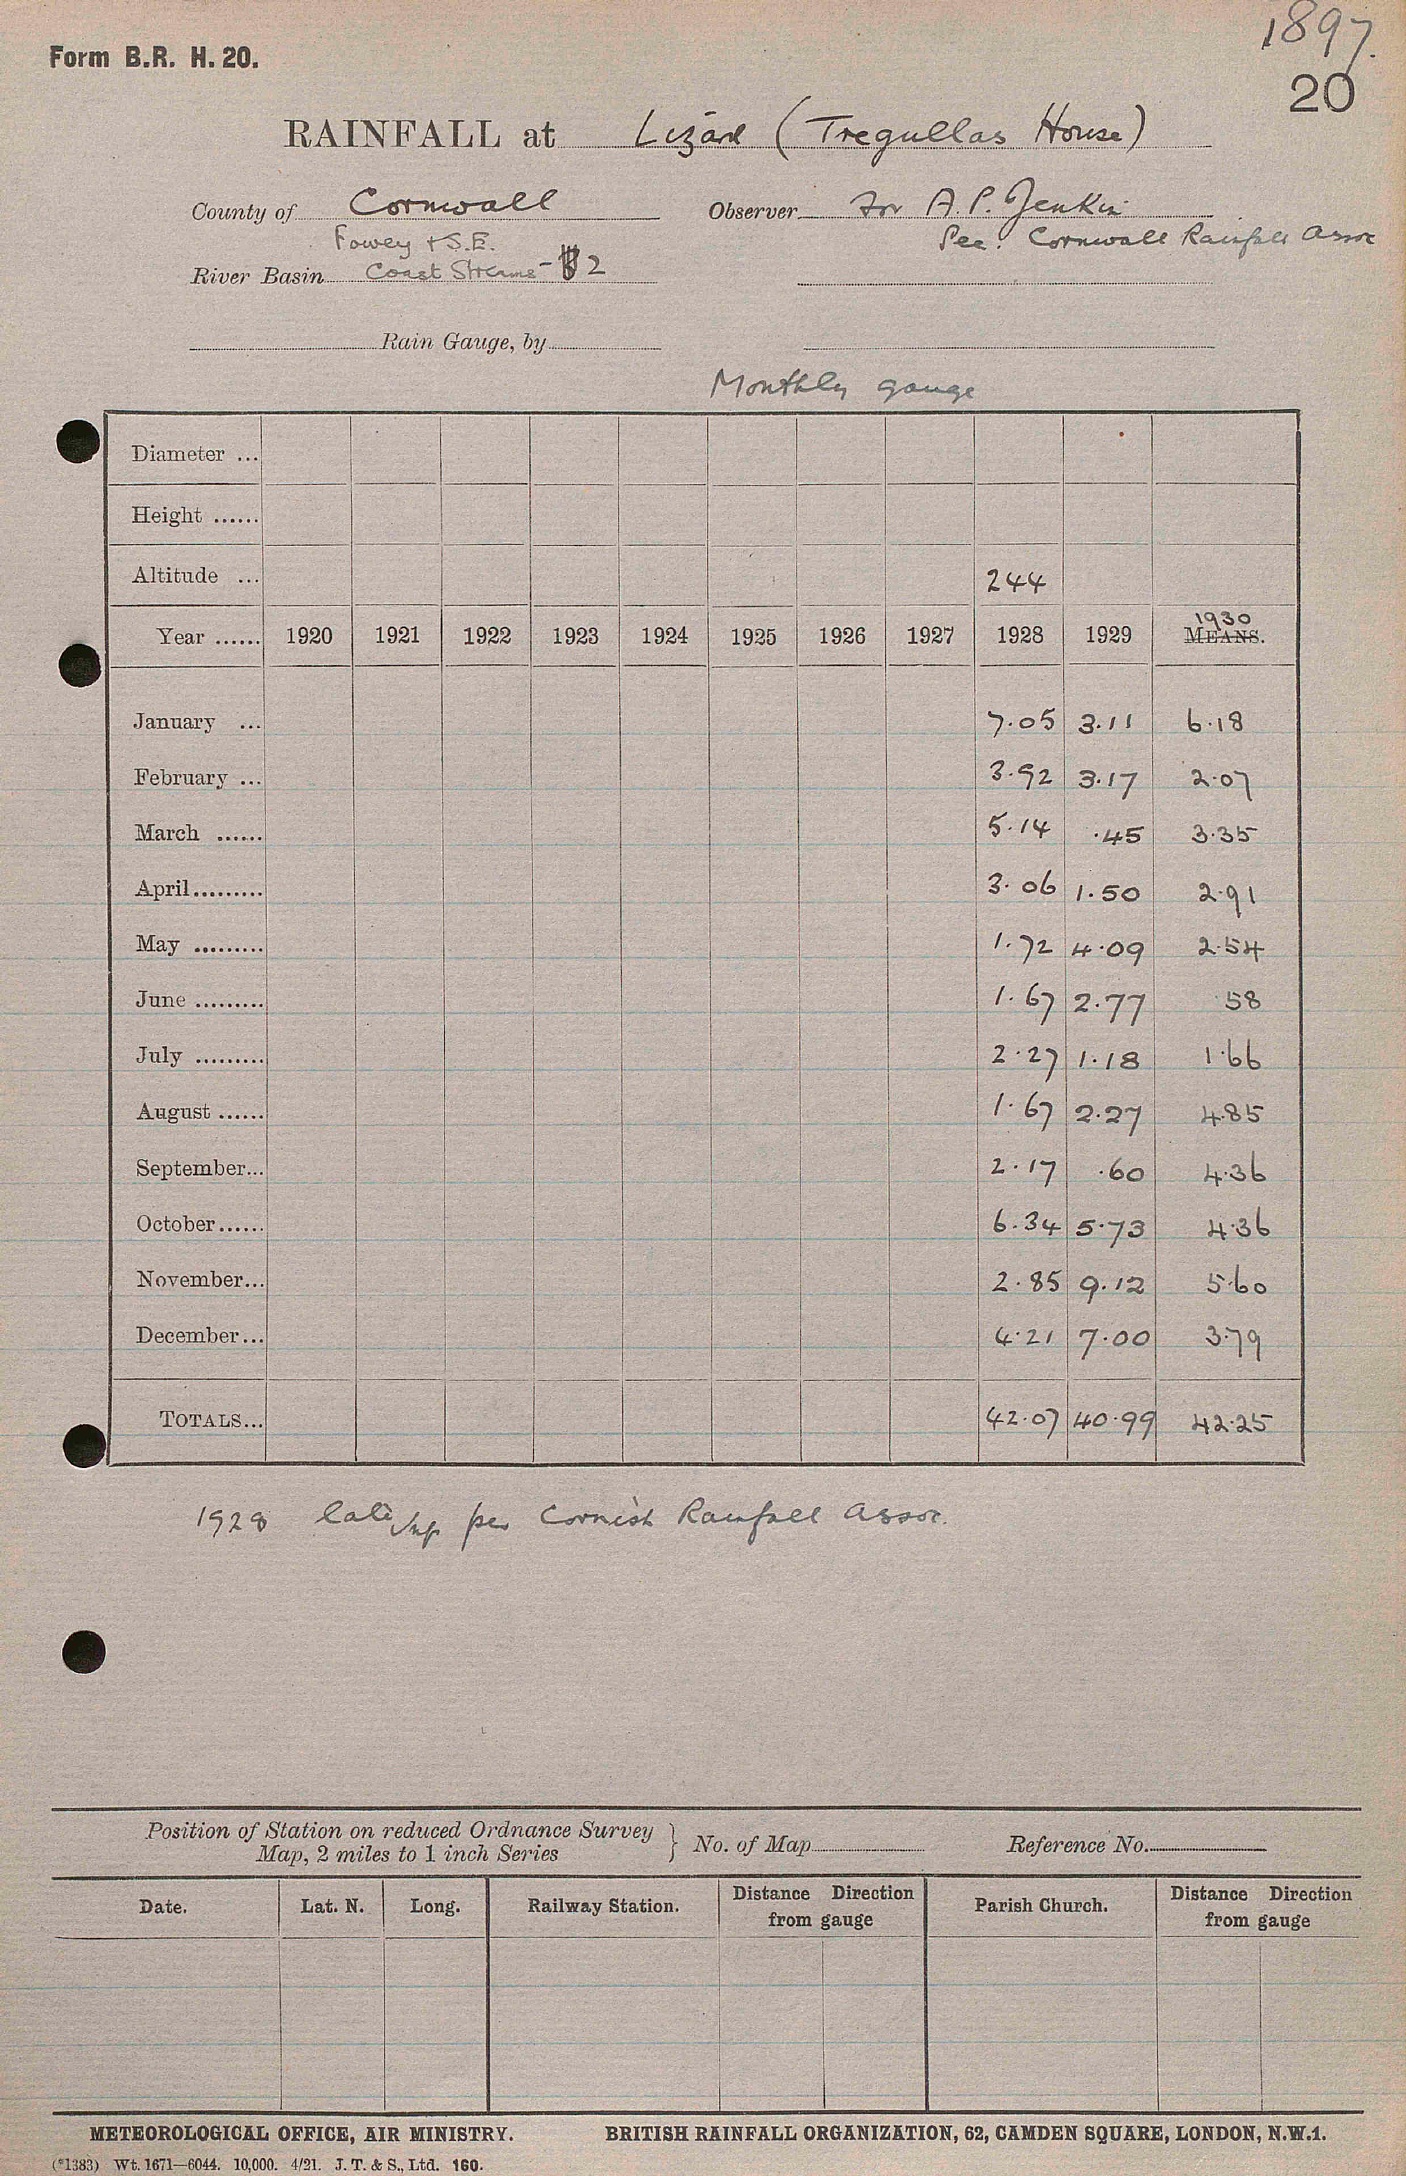 1897.
Form B.R. H. 20.
20
RAINFALL at Lizard (Tregullas House)
County of Cornwall Observer for A. P. Jenkin
Fowey & S.E. Per: Cornwall Rainfall Assoc
River Basin Coast Streams - 2
Rain Gauge, by
Monthly gauge
Diameter ...
Height ......
Altitude ... 244
1930
Year ...... 1920 1921 1922 1923 1924 1925 1926 1927 1928 1929 MEANS.
January ... 7.05 3.11 6.18
February ... 3.92 3.17 2.07
March ...... 5.14 .45 3.35
April......... 3.06 1.50 2.91
May ......... 1.72 4.09 2.54
June ......... 1.67 2.77 58
July ......... 2.27 1.18 1.66
August ...... 1.67 2.27 4.85
September... 2.17 .60 4.36
October...... 6.34 5.73 4.36
November... 2.85 9.12 5.60
December... 4.21 7.00 3.79
TOTALS... 42.07 40.99 42.25
1928 late per Cornish Rainfall Assoc.
Position of Station on reduced Ordnance Survey
Map, 2 miles to 1 inch Series } No. of Map Reference No.
Date. Lat. N. Long. Railway Station. Distance Direction from gauge Parish Church. Distance Direction from gauge
METEOROLOGICAL OFFICE, AIR MINISTRY. BRITISH RAINFALL ORGANIZATION, 62, CAMDEN SQUARE, LONDON, N.W.1.
(*1383) Wt. 1671—6044. 10,000. 4/21. J. T. & S., Ltd. 160.